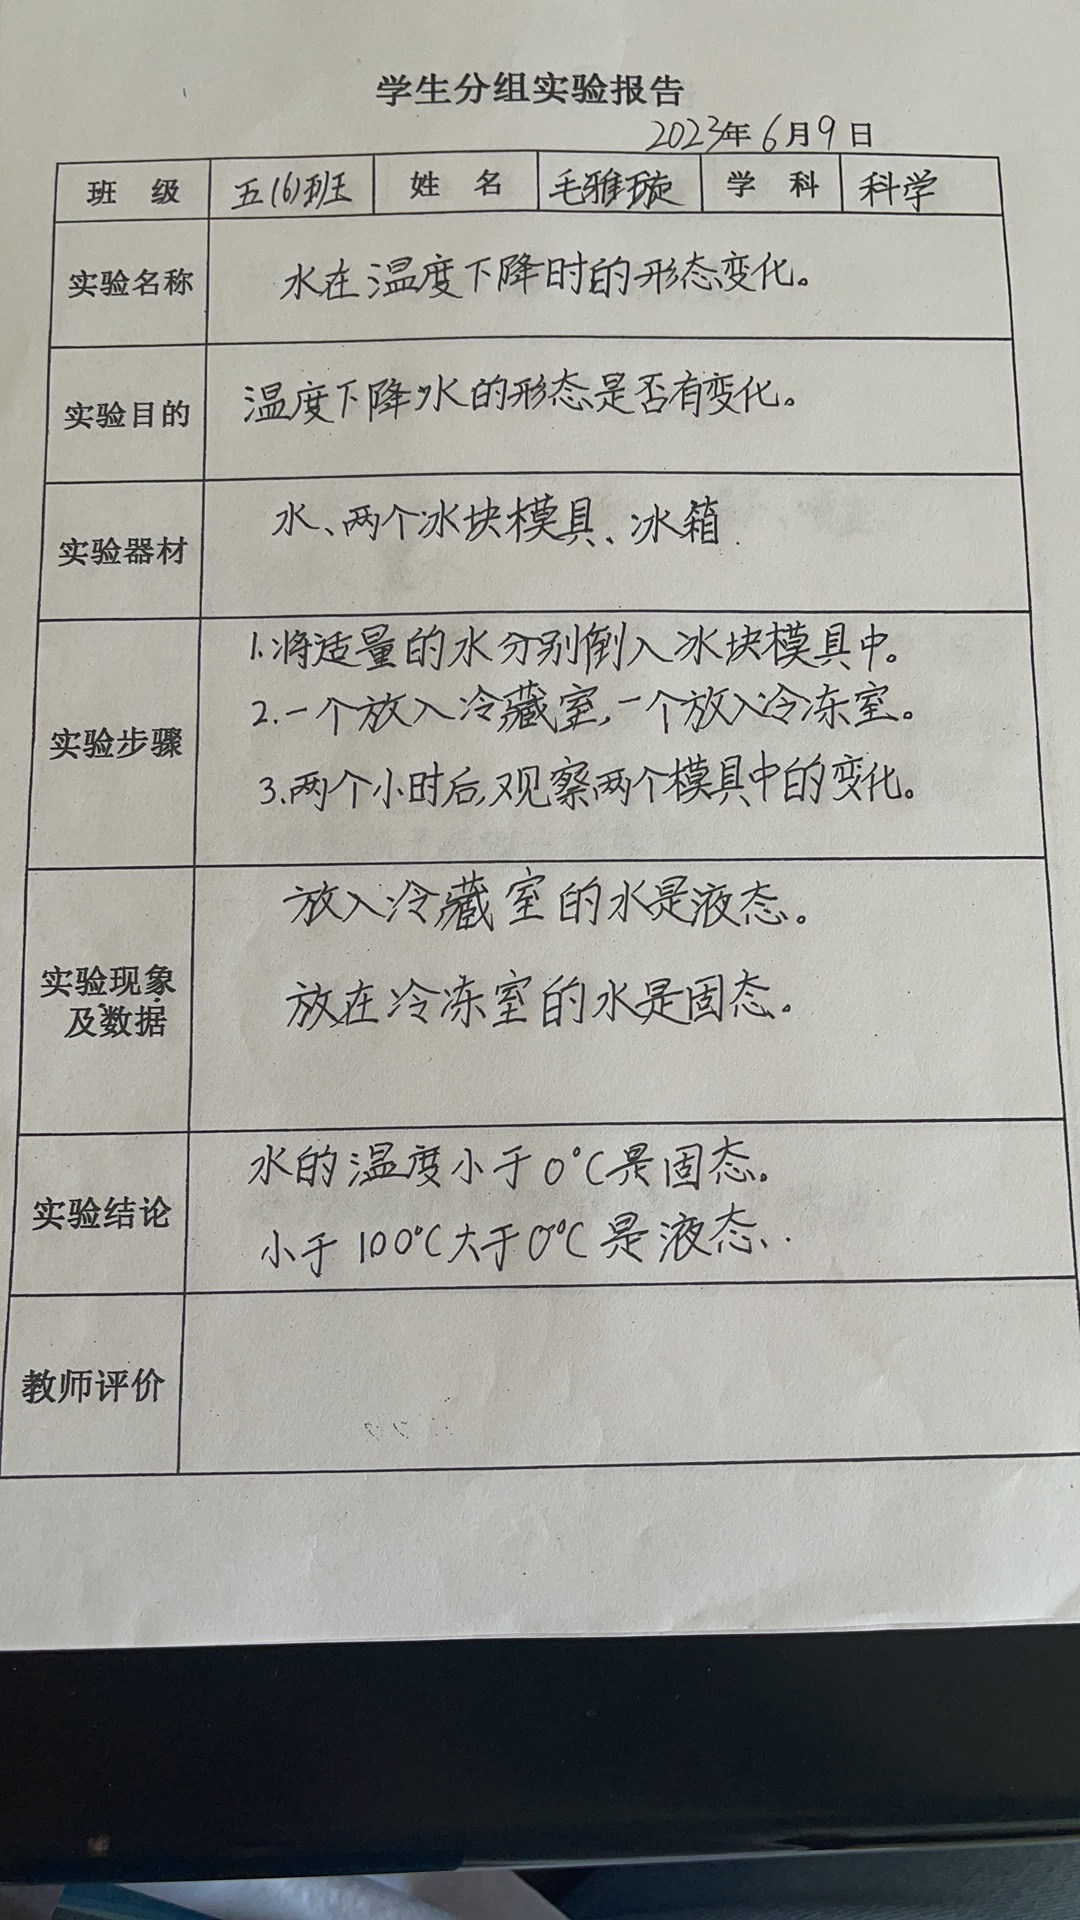 学生分组实验报告
2023年6月9日
班 级 五(6)班 姓 名 毛雅璇 学 科 科学
实验名称 水在温度下降时的形态变化。
实验目的 温度下降,水的形态是否有变化。
实验器材 水、两个冰块模具、冰箱.
1.将适量的水分别倒入冰块模具中。
2.一个放入冷藏室,一个放入冷冻室。
实验步骤
3.两个小时后,观察两个模具中的变化。
放入冷藏室的水是液态。
实验现象 放在冷冻室的水是固态。
及数据
水的温度小于0℃是固态。
实验结论
小于100℃大于0℃是液态.
教师评价